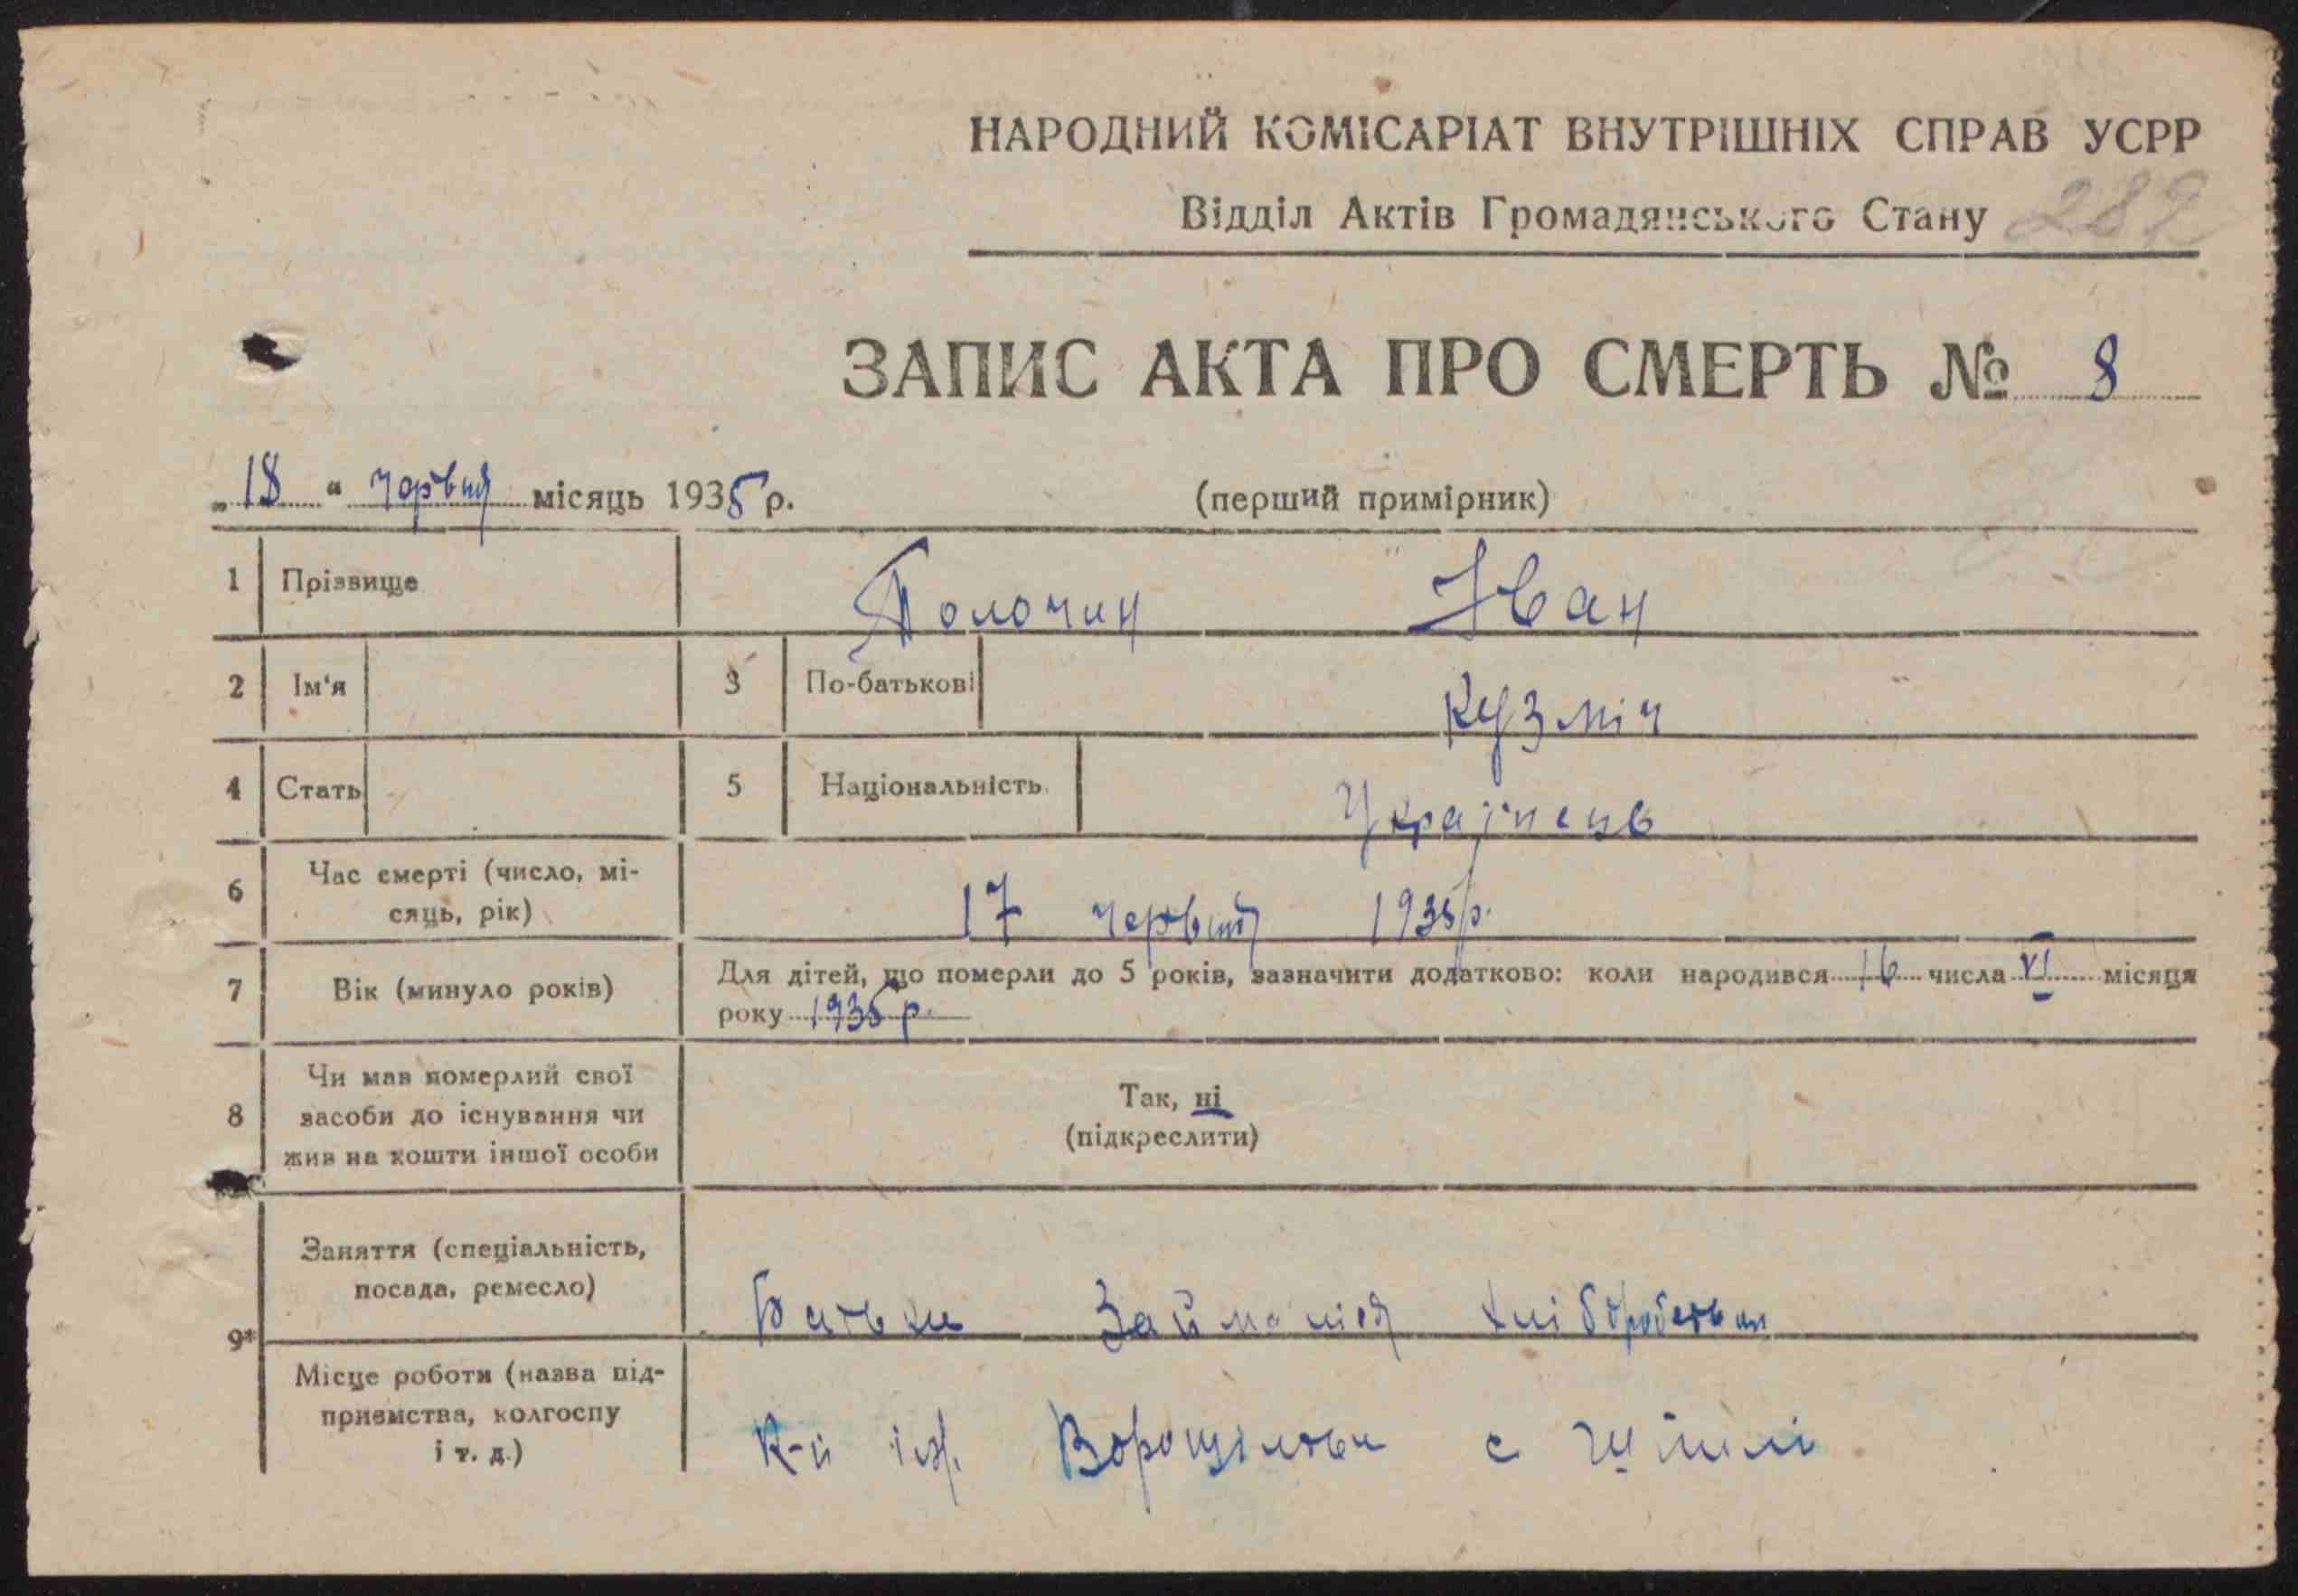 НАРОДНИЙ КОМІСАРІАТ ВНУТРІШНІХ СПРАВ УСРР
Відділ Актів Громадянського Стану 282
ЗАПИС АКТА ПРО СМЕРТЬ № 8
„18 " червня місяць 1935 р.
(перший примірник)
1 Прізвище Толочин Іван
2 Ім'я 3 По-батькові Кузміч
4 Стать 5 Національність Українець
6 Час смерті (число, мі-
сяць, рік) 17 червня 1935 р.
7 Вік (минуло років) Для дітей, що померли до 5 років, зазначити додатково: коли народився 16 числа VI місяця
року 1935 р.
8 Чи мав померлий свої
засоби до існування чи
жив на кошти іншої особи
Так, ні
(підкреслити)
9*
Заняття (спеціальність,
посада, ремесло)
Батьки хліборобства
Місце роботи (назва під-
приємства, колгоспу
і т. д.)
К-п ім. Ворошілова с